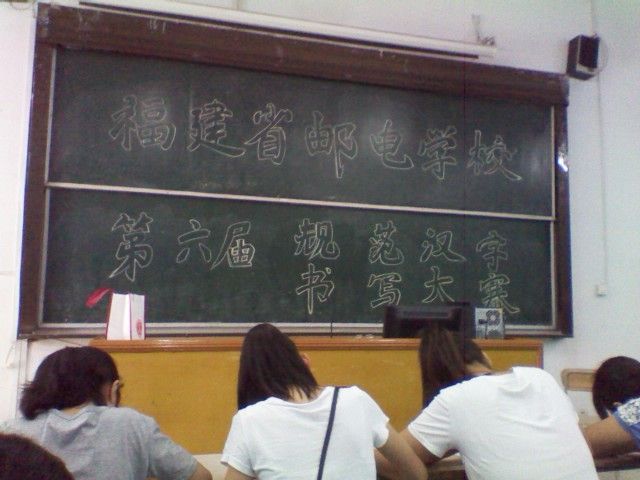 福建省邮电学校
第六届 规范汉字
书写大赛